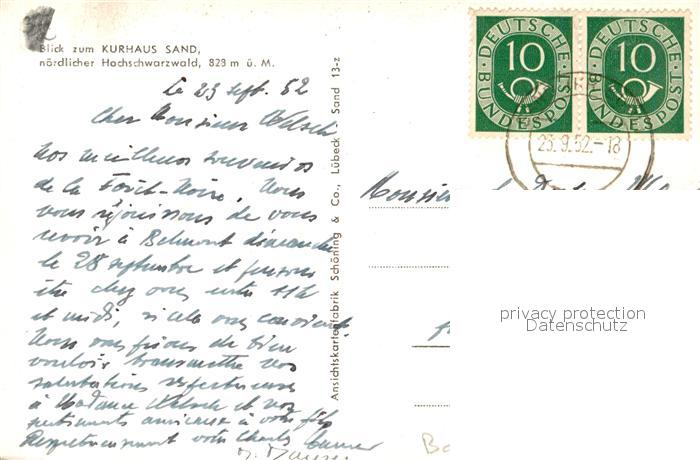 Blick zum KURHAUS SAND,
nördlicher Hochschwarzwald, 828 m ü. M.
le 23 sept. 52
Cher Monsieur Welsch
Nos meilleurs souvenirs
de la Forêt-Noire. Nous
nous réjouissons de vous
revoir à Belmont dimanche
le 28 septembre et pensons
être chez vous entre 11h
et midi, si cela vous convient.
Nous vous prions de bien
vouloir transmettre nos
salutations respectueuses
à Madame Welsch et nos
sentiments amicaux à votre fils
Respectueusement votre Charles
Ansichtskartenfabrik Schöning & Co., Lübeck Sand 13-z
DEUTSCHE BUNDESPOST 10
DEUTSCHE BUNDESPOST 10
23.9.52.-18
Monsieur
privacy protection
Datenschutz